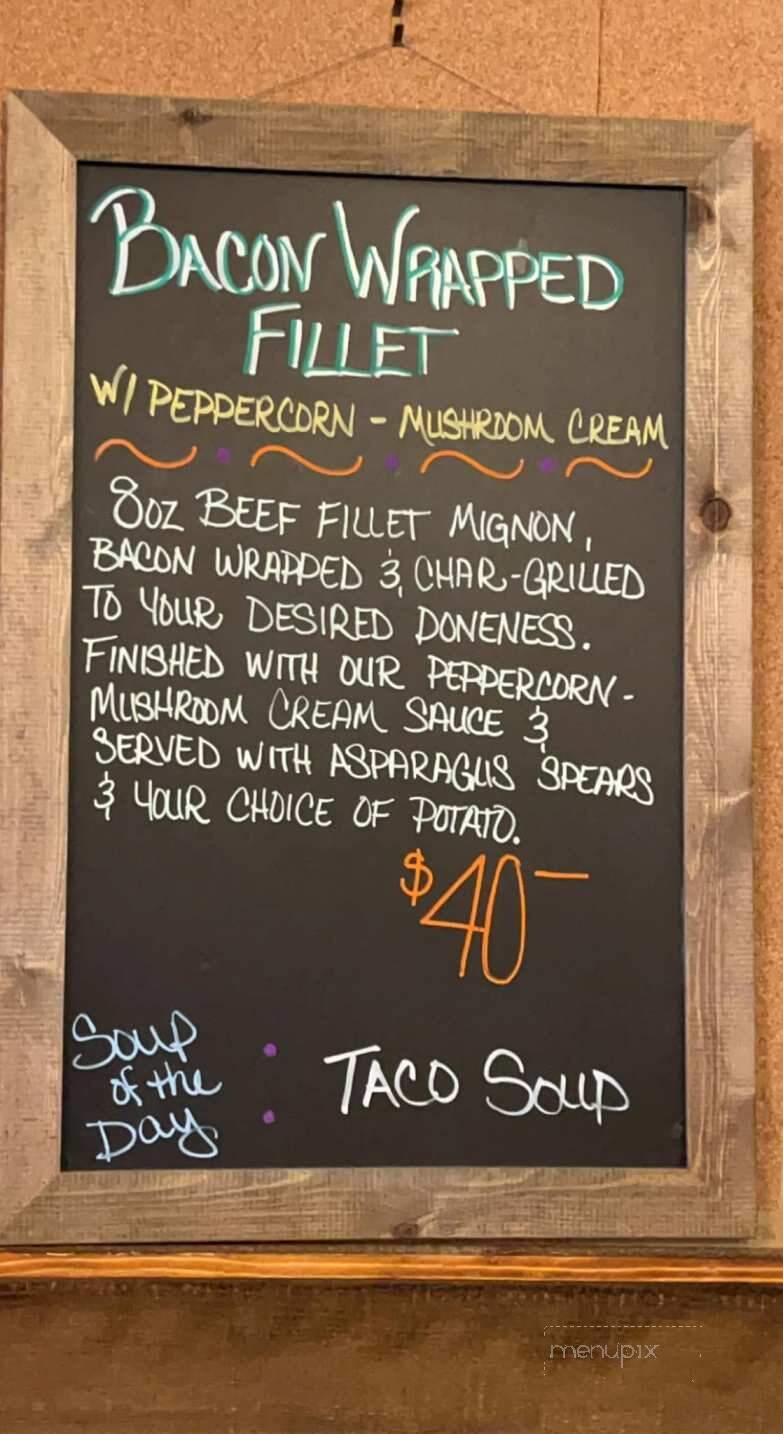 BACON WRAPPED
FILLET
W/ PEPPERCORN - MUSHROOM CREAM
8oz BEEF FILLET MIGNON,
BACON WRAPPED & CHAR-GRILLED
TO YOUR DESIRED DONENESS.
FINISHED WITH OUR PEPPERCORN-
MUSHROOM CREAM SAUCE &
SERVED WITH ASPARAGUS SPEARS
& YOUR CHOICE OF POTATO.
$40—
Soup
of the
Day
: TACO SOUP
menupix